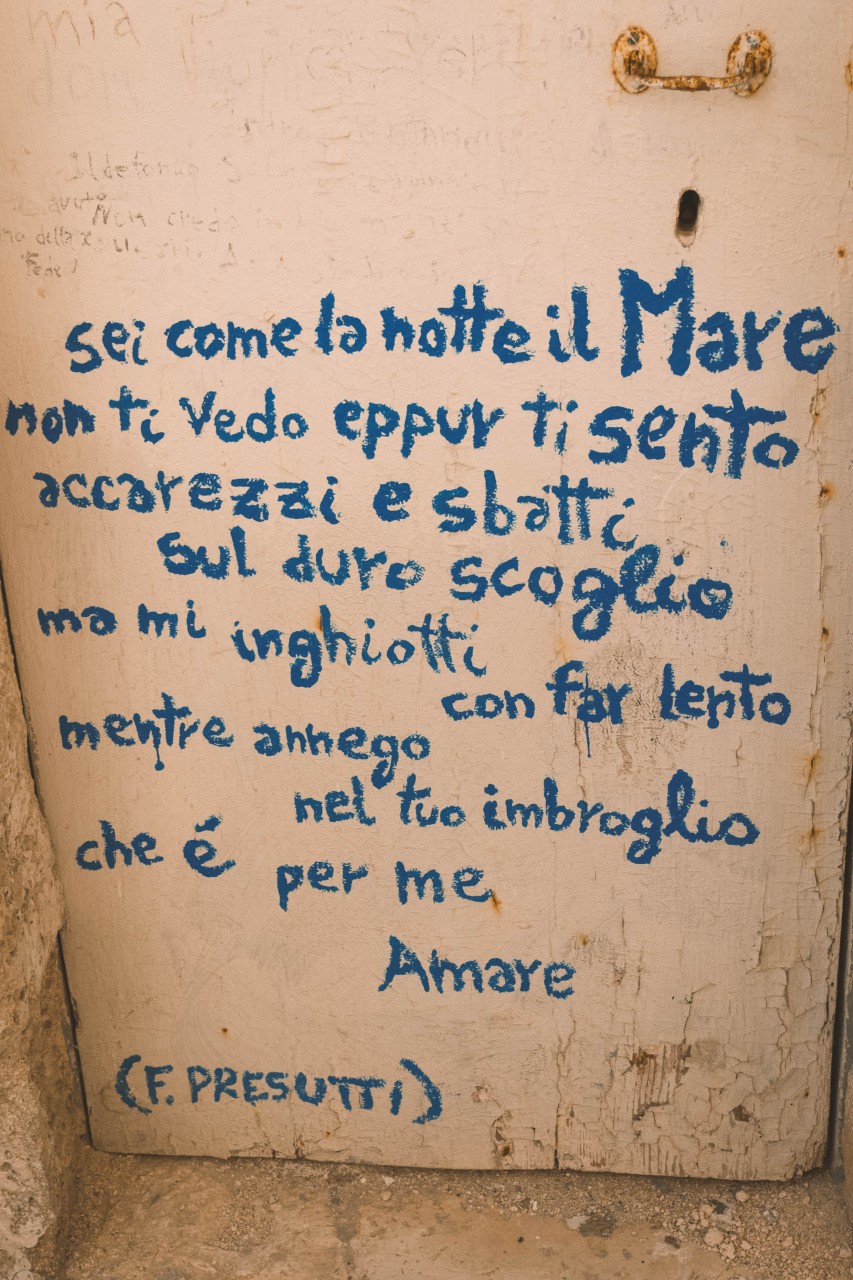 sei come la notte il Mare
non ti vedo eppur ti sento
accarezzi e sbatti
sul duro scoglio
ma mi inghiotti
con far lento
mentre annego
nel tuo imbroglio
che é per me
Amare
(F. PRESUTTI)